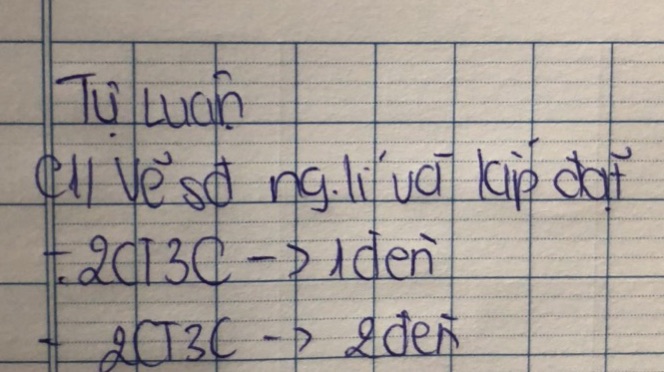 Tự Luận
C1/ Vẽ sơ đ ng.lí và lắp đặt
- 2CT3C -> 1 đèn
- 2CT3C -> 2 đèn